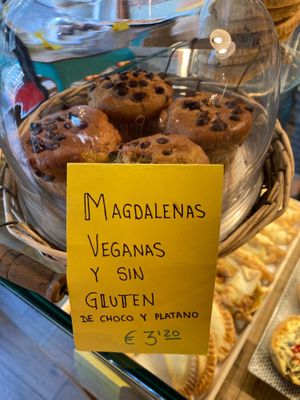 MAGDALENAS
VEGANAS
Y SIN
GLUTEN
DE CHOCO Y PLATANO
€ 3'20